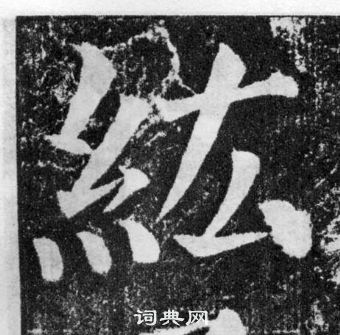 紘
词典网